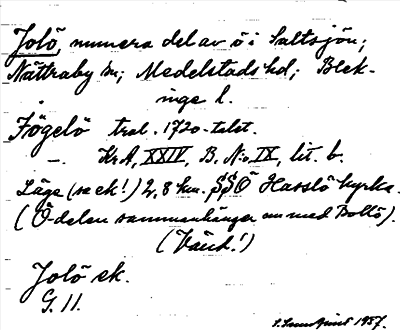 Jolö, numera del av ö i Saltsjön;
Nättraby sn; Medelstads hd; Blek-
inge l.
Jögelö trol. 1720-talet.
— KrA, XXIV, B. No, IX, lit. b.
Läge (se ek!) 2,8 km. SSÖ Hasslö kyrka.
(Ö-delen sammanhänger nu med Boltö).
(Vänd!)
Jolö ek.
G. 11.
1957.